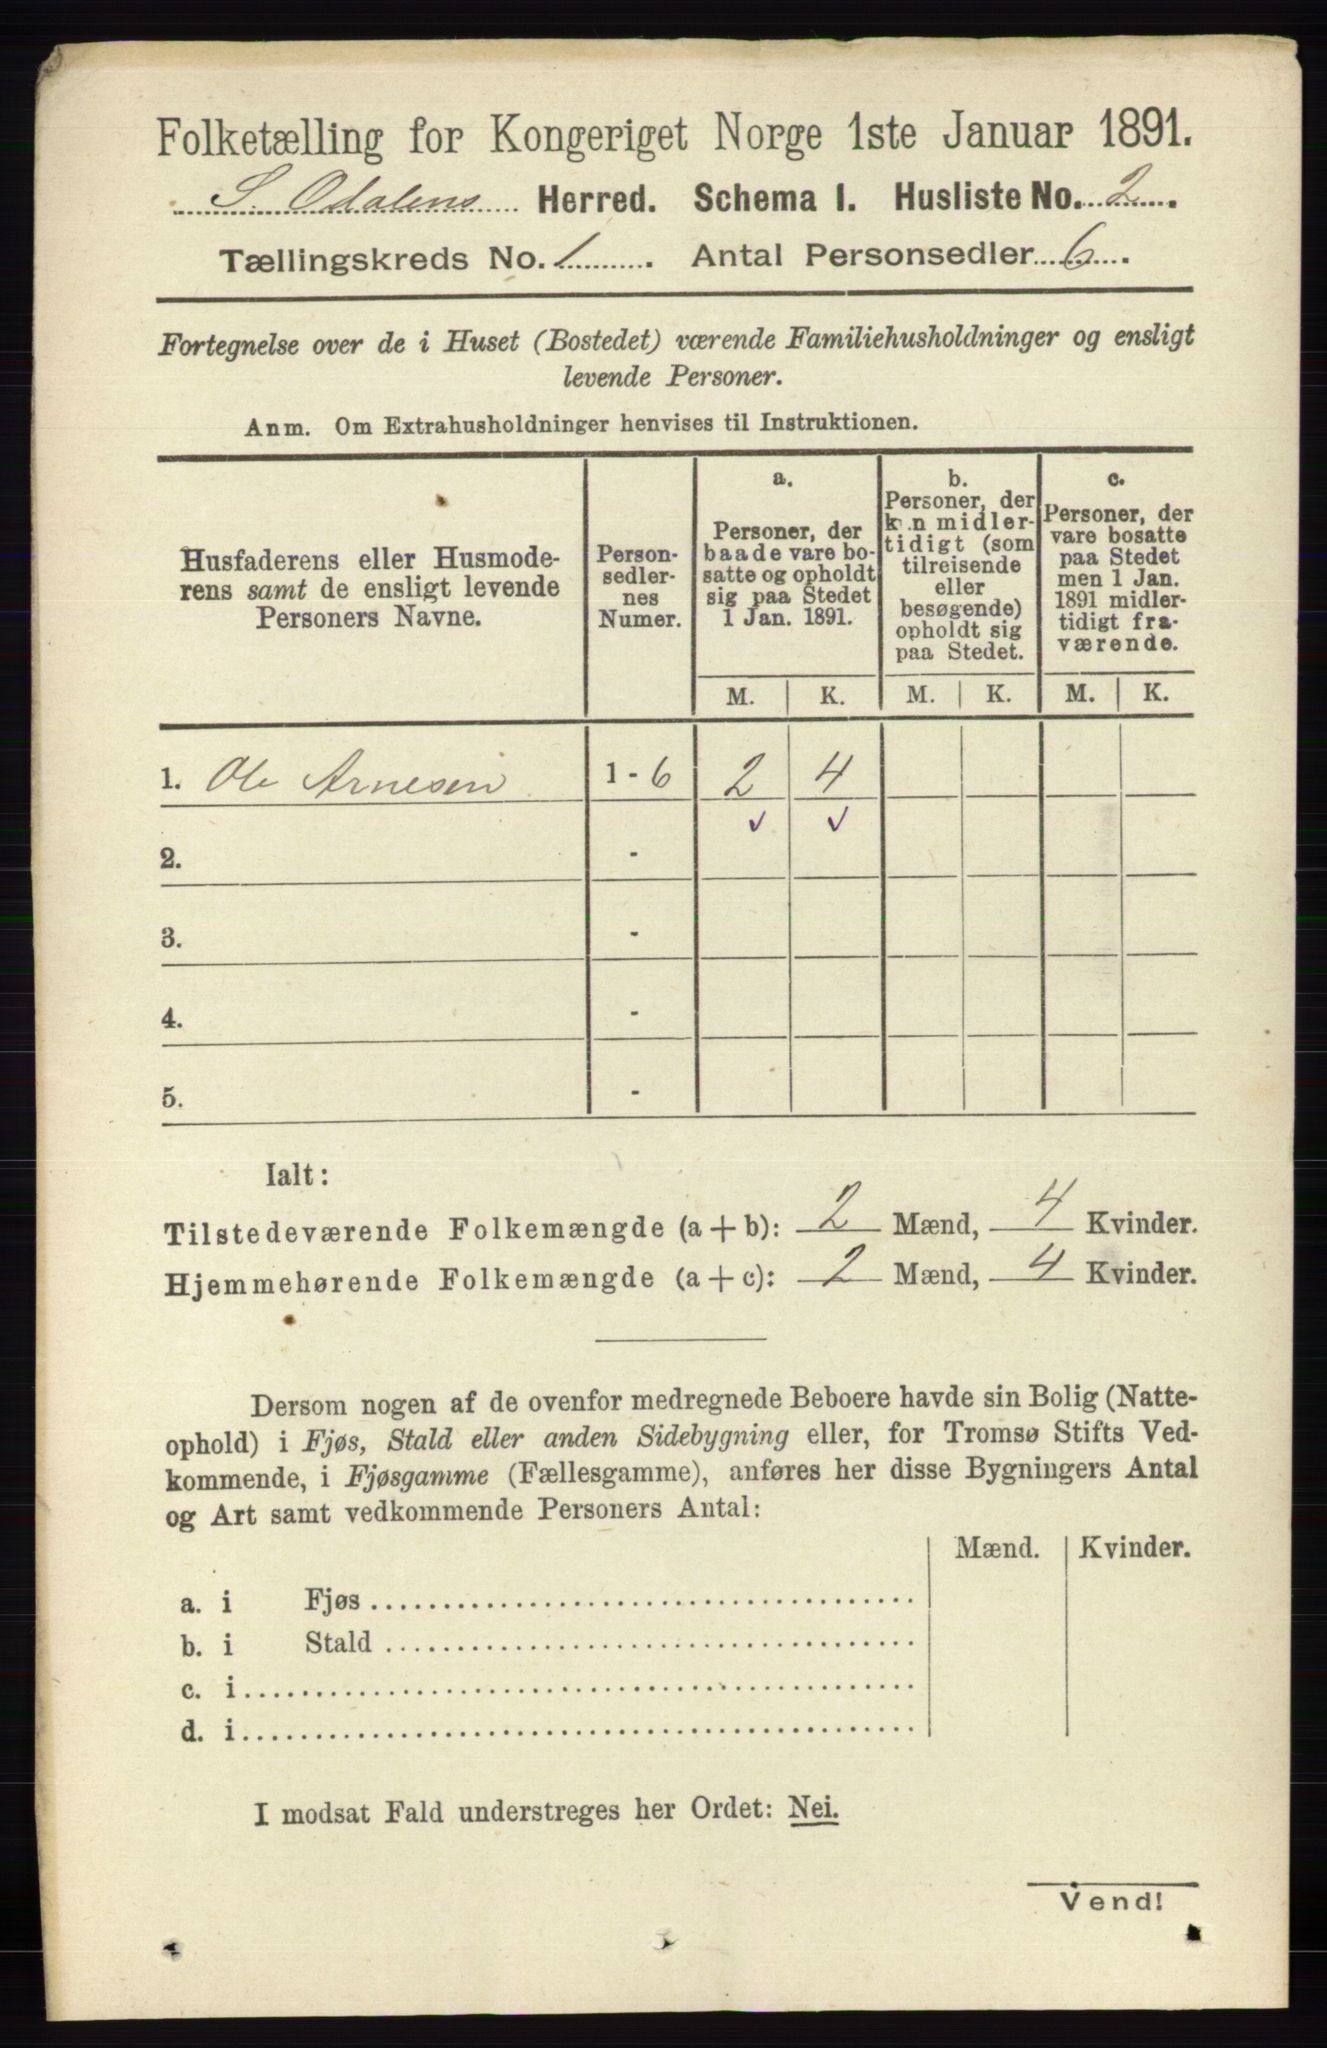 Folketælling for Kongeriget Norge 1ste Januar 1891.
S. Odalens Herred. Schema I. Husliste No. 2.
Tællingskreds No. 1. Antal Personsedler 6.
Fortegnelse over de i Huset (Bostedet) værende Familiehusholdninger og ensligt
levende Personer.
Anm. Om Extrahusholdninger henvises til Instruktionen.
Husfaderens eller Husmode-
rens samt de ensligt levende
Personers Navne.
Person-
sedler-
nes
Numer.
a.
Personer, der
baade vare bo-
satte og opholdt
sig paa Stedet
1 Jan. 1891.
b.
Personer, der
kun midler-
tidigt (som
tilreisende
eller
besøgende)
opholdt sig
paa Stedet.
c.
Personer, der
vare bosatte
paa Stedet
men 1 Jan.
1891 midler-
tidigt fra-
værende.
M. K. M. K. M. K.
1. Ole Arnesen 1 - 6 2 4
✓ ✓
2. -
3. -
4. -
5. -
Ialt:
Tilstedeværende Folkemængde (a + b): 2 Mænd, 4 Kvinder.
Hjemmehørende Folkemængde (a + c): 2 Mænd, 4 Kvinder.
Dersom nogen af de ovenfor medregnede Beboere havde sin Bolig (Natte-
ophold) i Fjøs, Stald eller anden Sidebygning eller, for Tromsø Stifts Ved-
kommende, i Fjøsgamme (Fællesgamme), anføres her disse Bygningers Antal
og Art samt vedkommende Personers Antal:
Mænd. Kvinder.
a. i Fjøs
b. i Stald
c. i
d. i
I modsat Fald understreges her Ordet: Nei.
Vend!